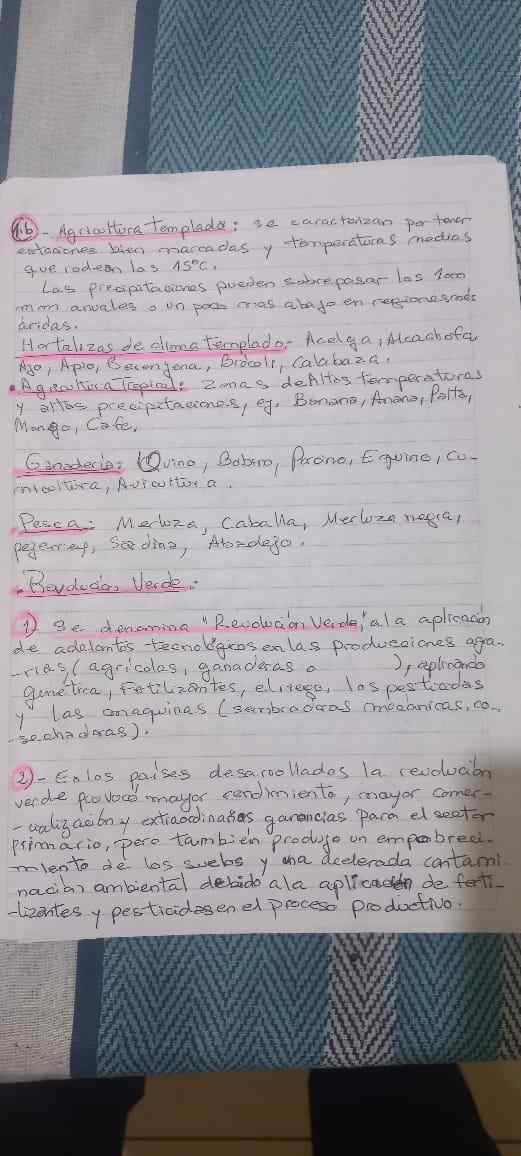 1.b - Agricultura Templada: se caracterizan por tener
estaciones bien marcadas y temperaturas medias
que rodean los 15°C.
Las precipitaciones pueden sobrepasar los 1000
mm anuales o un poco mas abajo en regiones más
áridas.
Hortalizas de clima templado- Acelga, Alcachofa
Ajo, Apio, Berenjena, Brócoli, Calabaza.
. Agricultura Tropical: Zonas de Altos temperaturas
y altas precipitaciones, eg. Banana, Anana, Palta,
Mango, Café,
Ganadería: Ovino, Bobino, Porcino, Equino, Cu-
nicultura, Avicultura.
. Pesca: Merluza, Caballa, Merluza negra,
pejerrey, Sardina, Abadejo.
. Revolución Verde:
1) Se denomina "Revolución Verde," a la aplicación
de adelantos tecnológicos en las producciones agra-
-rias (agrícolas, ganaderas o ), aplicando
genética, Fertilizantes, el riego, los pesticidas
y las maquinas (sembradoras mecánicas, co-
-sechadoras).
2)- En los países desarrollados la revolución
verde provocó mayor rendimiento, mayor comer-
-cialización y extraordinarias ganancias para el sector
primario, pero también produjo un empobreci-
miento de los suelos y una acelerada contami-
nación ambiental debido a la aplicación de ferti-
-lizantes y pesticidas en el proceso productivo.